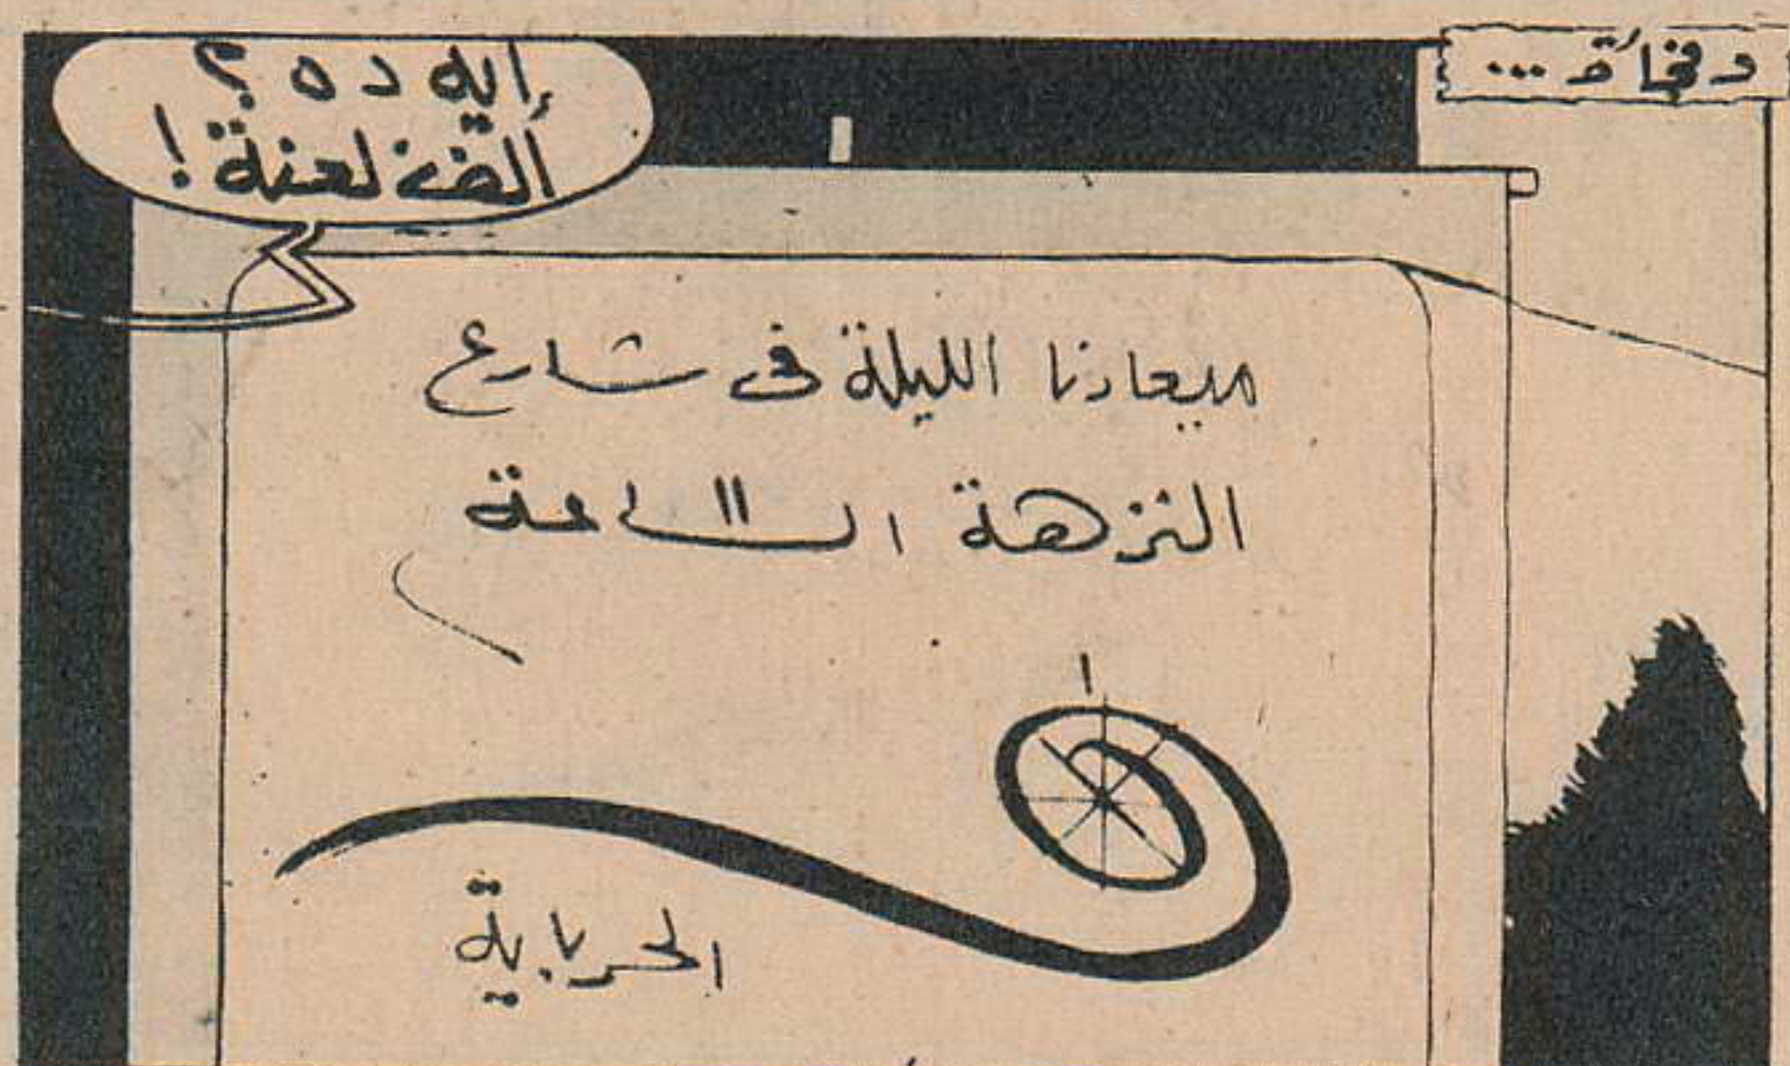 وفجأة ...
إيه ده ؟
ألف لعنة !
ميعادنا الليلة فى شارع
النزهة الساعة ١١
الحرباية